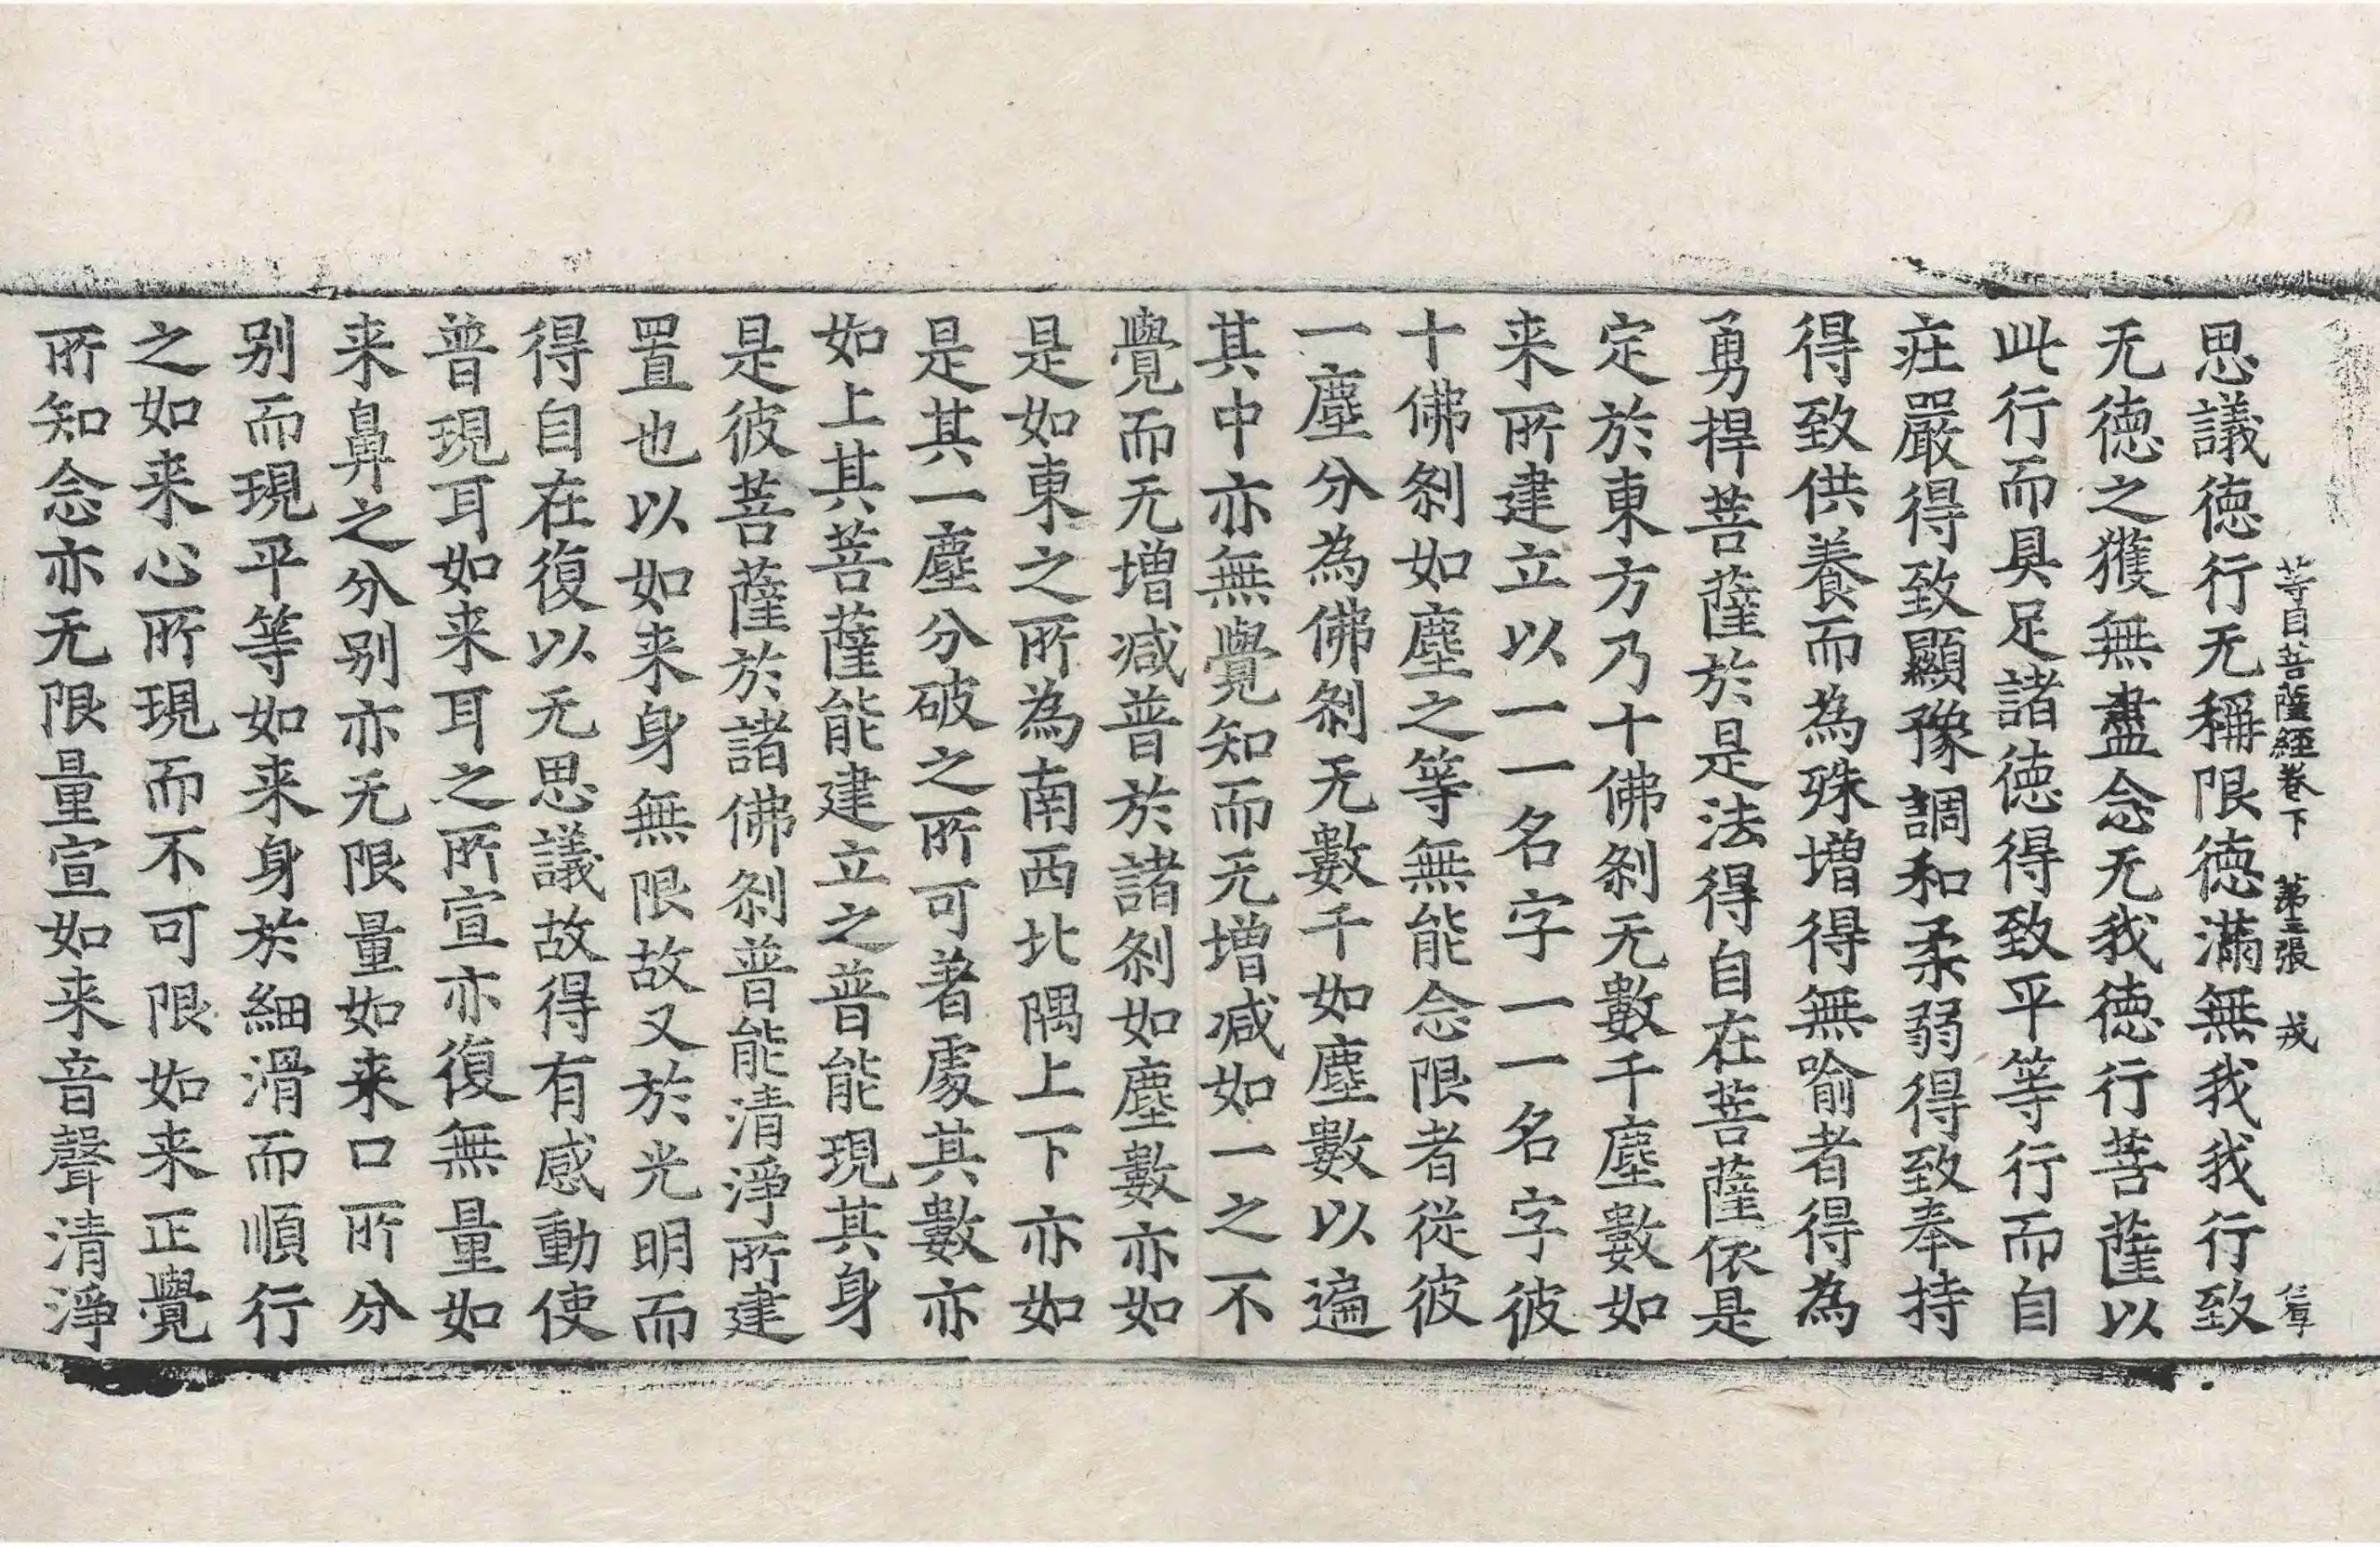 等目菩薩經卷下 第三張 戎
思議徳行无稱限徳滿無我我行致
无徳之獲無盡念无我徳行菩薩以
此行而具足諸徳得致平等行而自
庄嚴得致顯豫調和柔弱得致奉持
得致供養而為殊増得無喻者得為
勇捍菩薩於是法得自在菩薩依是
定於東方乃十佛刹无數千塵數如
来所建立以一一名字一一名字彼
十佛刹如塵之等無能念限者從彼
一塵分為佛刹无數千如塵數以遍
其中亦無覺知而无増减如一之不
覺而无増减普於諸刹如塵數亦如
是如東之所為南西北隅上下亦如
是其一塵分破之所可著處其數亦
如上其菩薩能建立之普能現其身
是彼菩薩於諸佛刹普能清淨所建
置也以如来身無限故又於光明而
得自在復以无思議故得有感動使
普現耳如来耳之所宣亦復無量如
来鼻之分别亦无限量如来口所分
别而現平等如来身於細滑而順行
之如来心所現而不可限如来正覺
所知念亦无限量宣如来音聲清淨